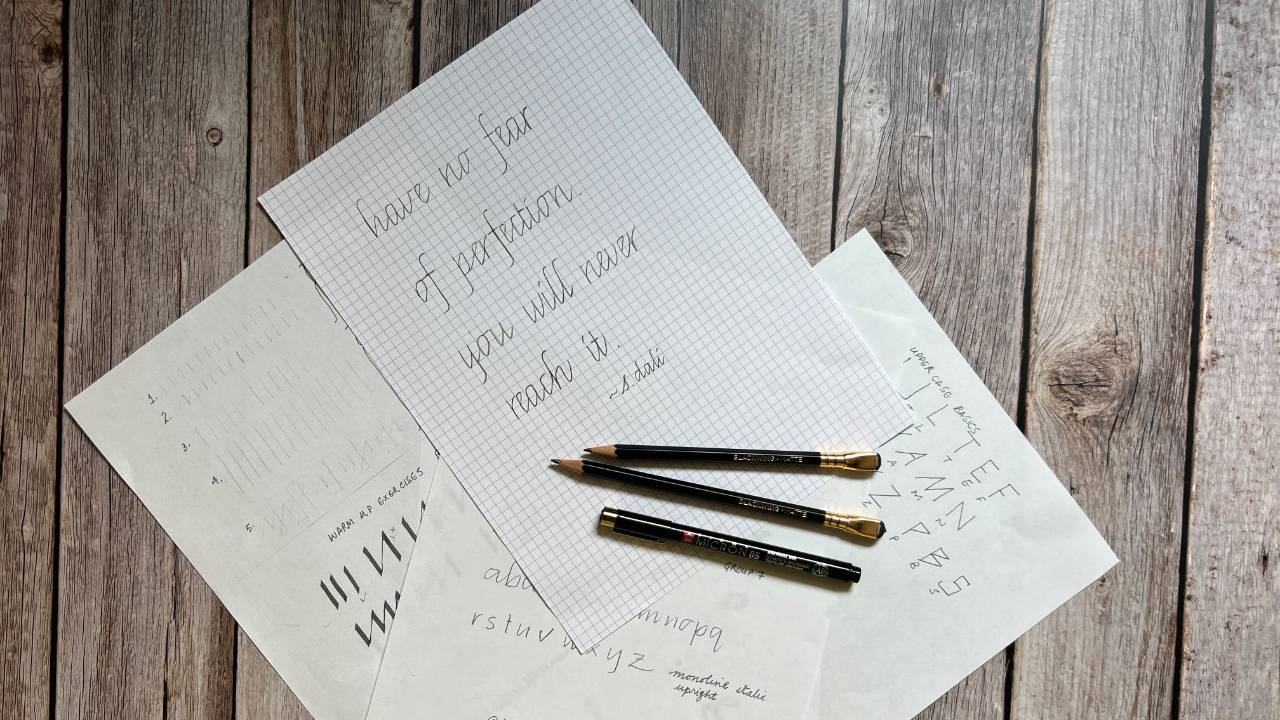 have no fear
of perfection.
you will never
reach it.
~s. dali
1.
2.
3.
4.
5.
WARM UP EXERCISES
UPPER CASE BASICS
I J L T E F
L T E F
V A M N
A M N
Z P B S
Z P B S
BLACKWING MATTE
BLACKWING MATTE
MICRON 05
GROUP 7
abc
mnopq
rstuvwxyz
monoline italic
upright